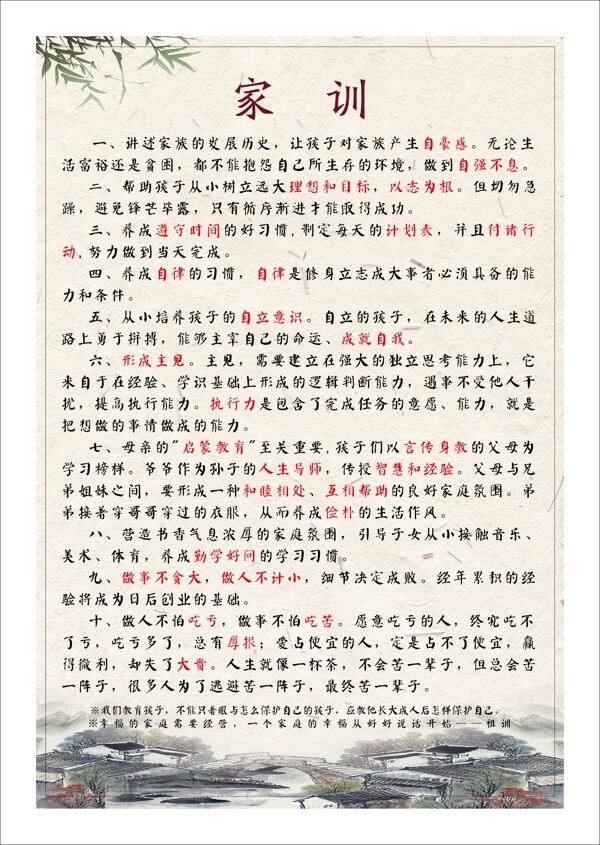 家 训
一、讲述家族的发展历史，让孩子对家族产生自豪感。无论生
活富裕还是贫困，都不能抱怨自己所生存的环境，做到自强不息。
二、帮助孩子从小树立远大理想和目标，以志为根。但切勿急
躁，避免锋芒毕露，只有循序渐进才能取得成功。
三、养成遵守时间的好习惯，制定每天的计划表，并且付诸行
动，努力做到当天完成。
四、养成自律的习惯，自律是修身立志成大事者必须具备的能
力和条件。
五、从小培养孩子的自立意识。自立的孩子，在未来的人生道
路上勇于拼搏，能够主宰自己的命运、成就自我。
六、形成主见。主见，需要建立在强大的独立思考能力上，它
来自于在经验、学识基础上形成的逻辑判断能力，遇事不受他人干
扰，提高执行能力。执行力是包含了完成任务的意愿、能力，就是
把想做的事情做成的能力。
七、母亲的"启蒙教育"至关重要，孩子们以言传身教的父母为
学习榜样。爷爷作为孙子的人生导师，传授智慧和经验。父母与兄
弟姐妹之间，要形成一种和睦相处、互相帮助的良好家庭氛围。弟
弟接着穿哥哥穿过的衣服，从而养成俭朴的生活作风。
八、营造书香气息浓厚的家庭氛围，引导子女从小接触音乐、
美术、体育，养成勤学好问的学习习惯。
九、做事不贪大，做人不计小，细节决定成败。经年累积的经
验将成为日后创业的基础。
十、做人不怕吃亏，做事不怕吃苦。愿意吃亏的人，终究吃不
了亏，吃亏多了，总有厚报；爱占便宜的人，定是占不了便宜，赢
得微利，却失了大贵。人生就像一杯茶，不会苦一辈子，但总会苦
一阵子，很多人为了逃避苦一阵子，最终苦一辈子。
※我们教育孩子，不能只着眼与怎么保护自己的孩子，应教他长大成人后怎样保护自己。
※幸福的家庭需要经营，一个家庭的幸福从好好说话开始——祖训